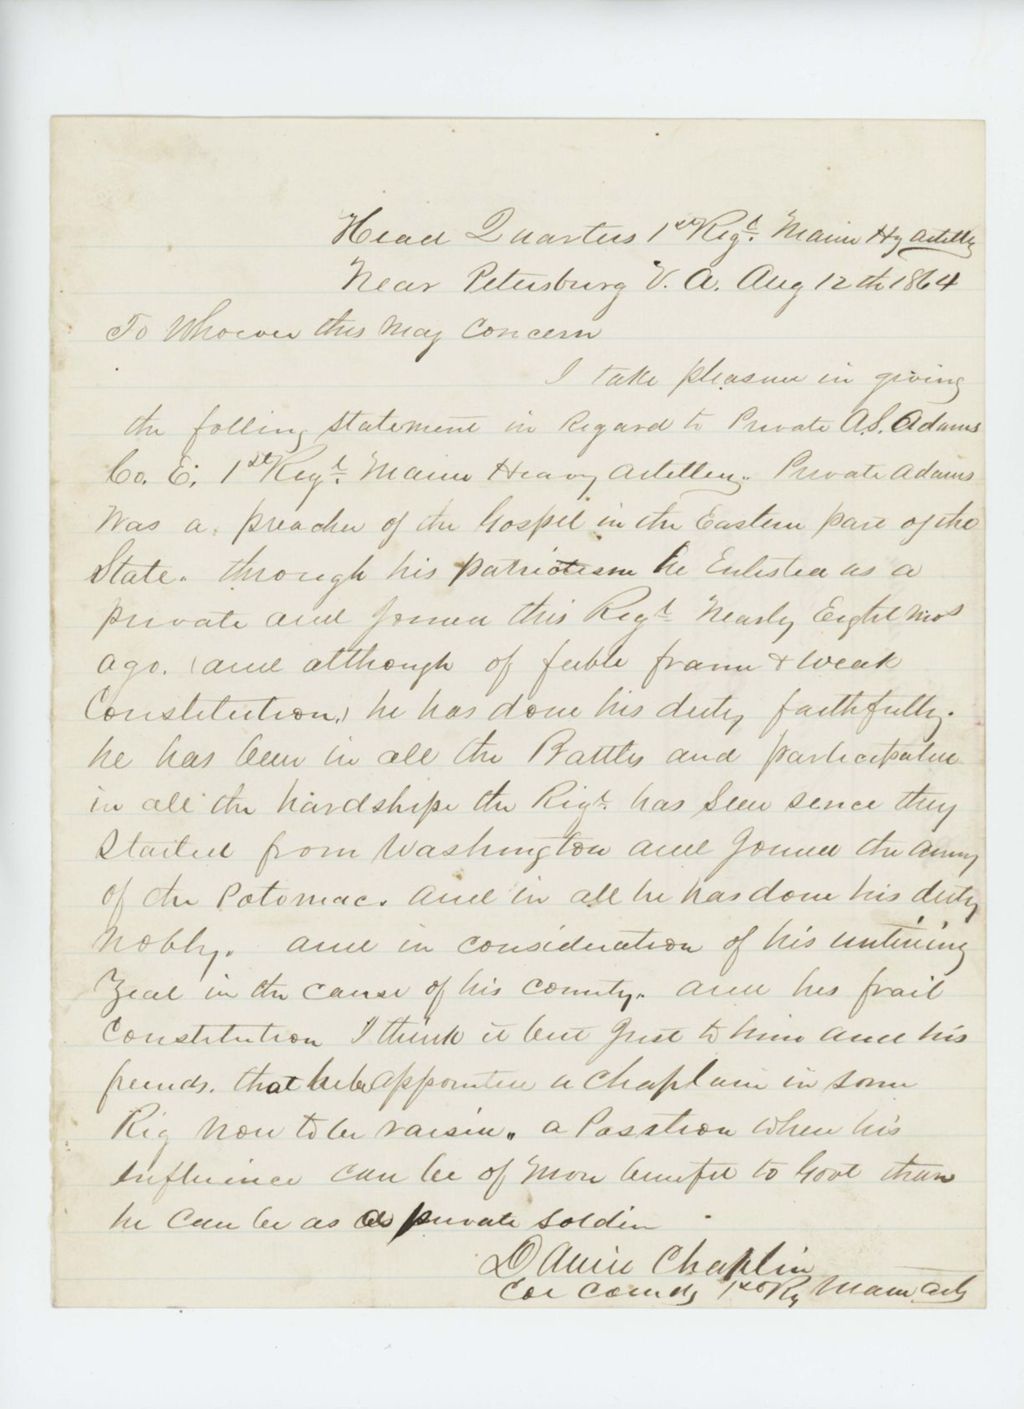 Head Quarters 1st Regt. Maine Hy Artilly
Near Petersburg V. A. Aug 12th 1864
To Whoever this May Concern
I take pleasure in giving
the folling statement in Regard to Private A.S. Adams
Co. E. 1st Regt. Maine Heavy Artillery. Private Adams
Was a preacher of the Gospel in the Eastern part of the
State. through his patriotism he Enlisted as a
private and Joined this Regt Nearly Eight mos
ago. (and although of feeble frame & weak
Constitution,) he has done his duty faithfully.
he has been in all the Battles and participated
in all the hardships the Rigt. has Seen sence they
Started from Washington and Joined the Army
of the Potomac. And in all he has done his duty
Nobly. and in consideration of his untiring
Zeal in the cause of his county. and his frail
Constitution I think it but Just to him and his
freinds. that he be Appointed a Chaplain in some
Rig Now to be raisen. a Position where his
Influince can be of More benefit to Govt than
he can be as a private Soldier
Daniel Chaplin
Col Comdg 1st Rg Maine Arty